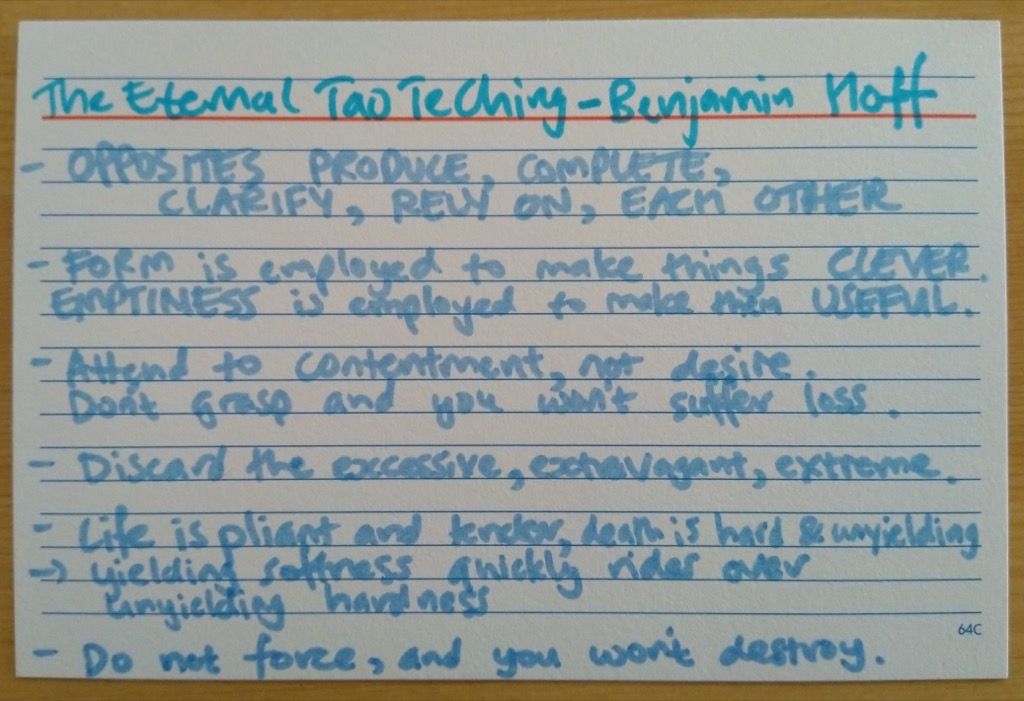 The Eternal Tao Te Ching - Benjamin Hoff
- OPPOSITES PRODUCE, COMPLETE,
CLARIFY, RELY ON, EACH OTHER
- FORM is employed to make things CLEVER.
EMPTINESS is employed to make them USEFUL.
- Attend to contentment, not desire.
Don't grasp and you won't suffer loss.
- Discard the excessive, extravagant, extreme.
- Life is pliant and tender, death is hard & unyielding
-> yielding softness quickly rides over
unyielding hardness
64C
- Do not force, and you won't destroy.